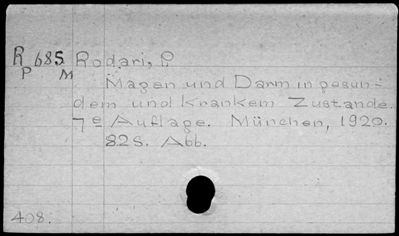 R 685 Rodari, P
P M
Magen und Darm in gesun-
dem und Krankem Zustande.
7e Auflage. München, 1920.
82S. Abb.
408.